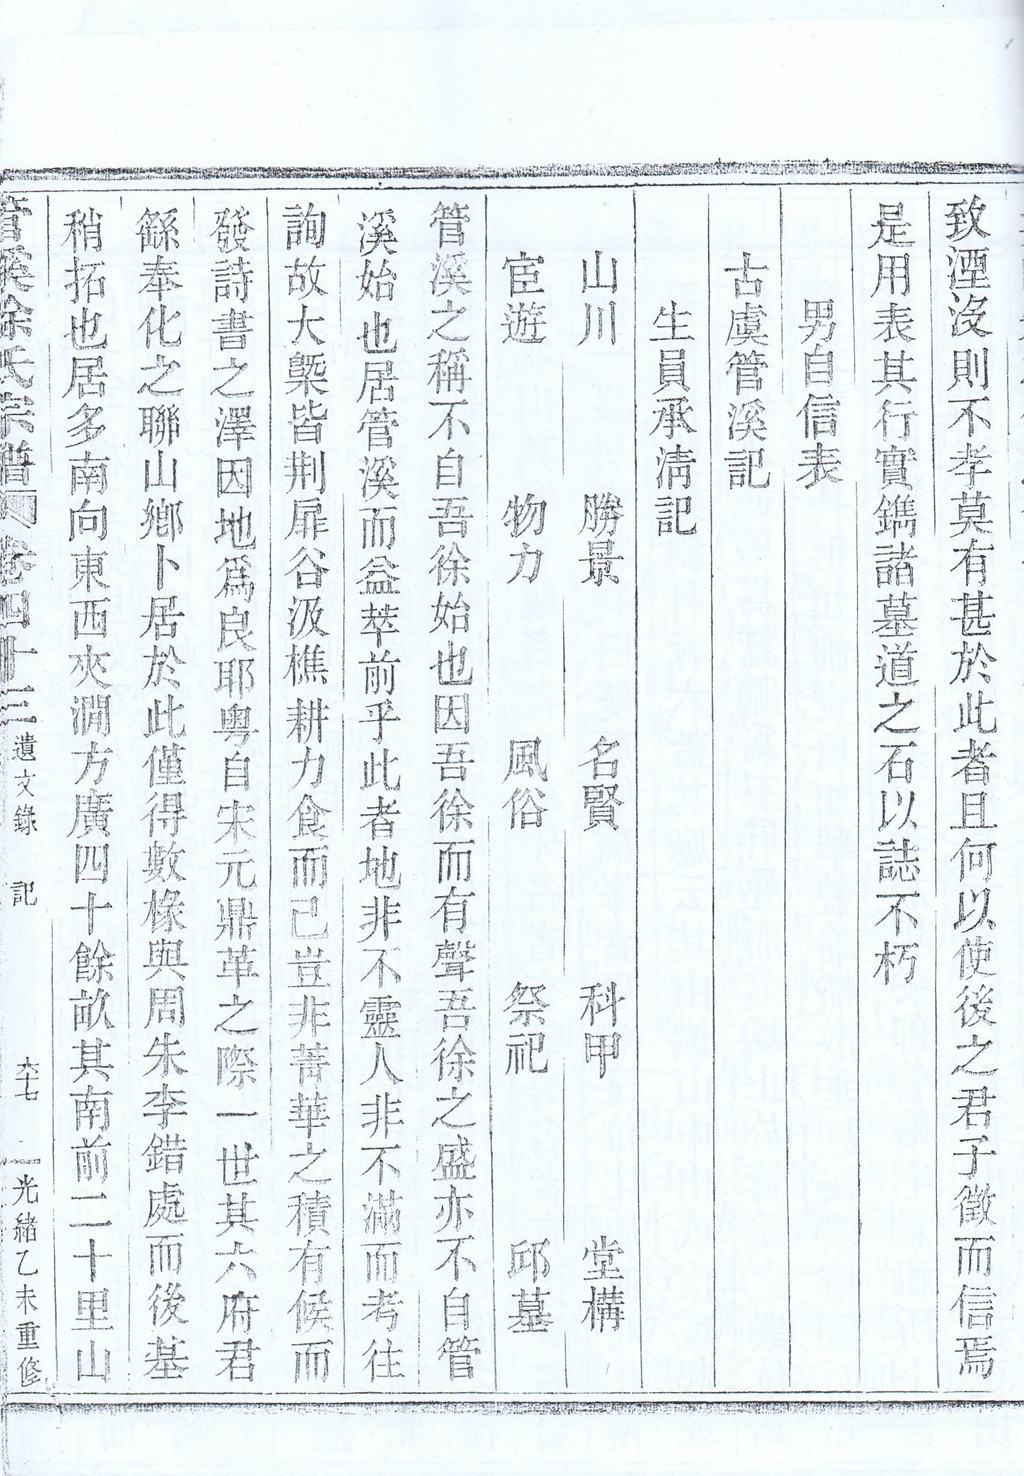 致湮沒則不孝莫有甚於此者且何以使後之君子徵而信焉
是用表其行實鐫諸墓道之石以誌不朽
男自信表
古虞管溪記
生員承淸記
山川 勝景 名賢 科甲 堂構
宦遊 物力 風俗 祭祀 邱墓
管溪之稱不自吾徐始也因吾徐而有聲吾徐之盛亦不自管
溪始也居管溪而益萃前乎此者地非不靈人非不滿而考往
詢故大槩皆荆扉谷汲樵耕力食而已豈非菁華之積有候而
發詩書之澤因地爲良耶粤自宋元鼎革之際一世其六府君
繇奉化之聯山鄉卜居於此僅得數椽與周朱李錯處而後基
稍拓也居多南向東西夾澗方廣四十餘畝其南前二十里山
管溪徐氏宗譜 卷四十三 遺文錄 記 六十七 光緒乙未重修